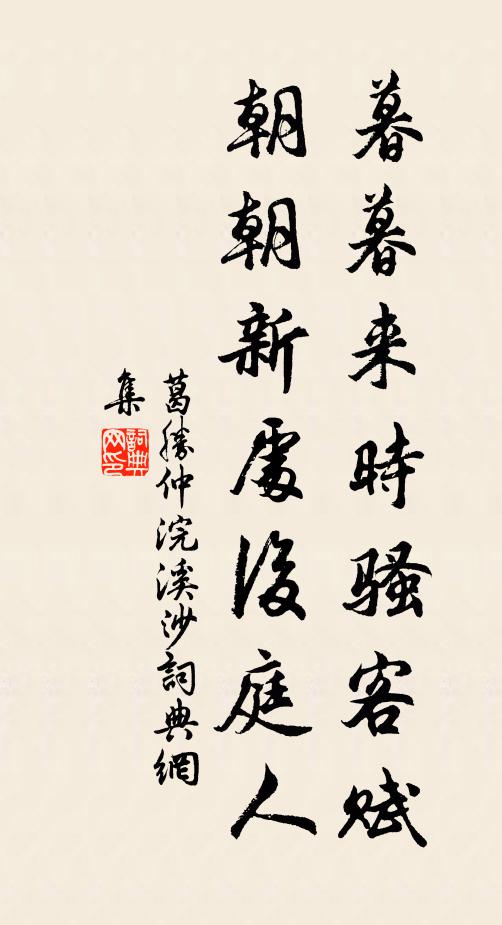 暮暮来時騷客賦
朝朝新處後庭人
葛勝仲浣溪沙詞典網
集
詞典网印